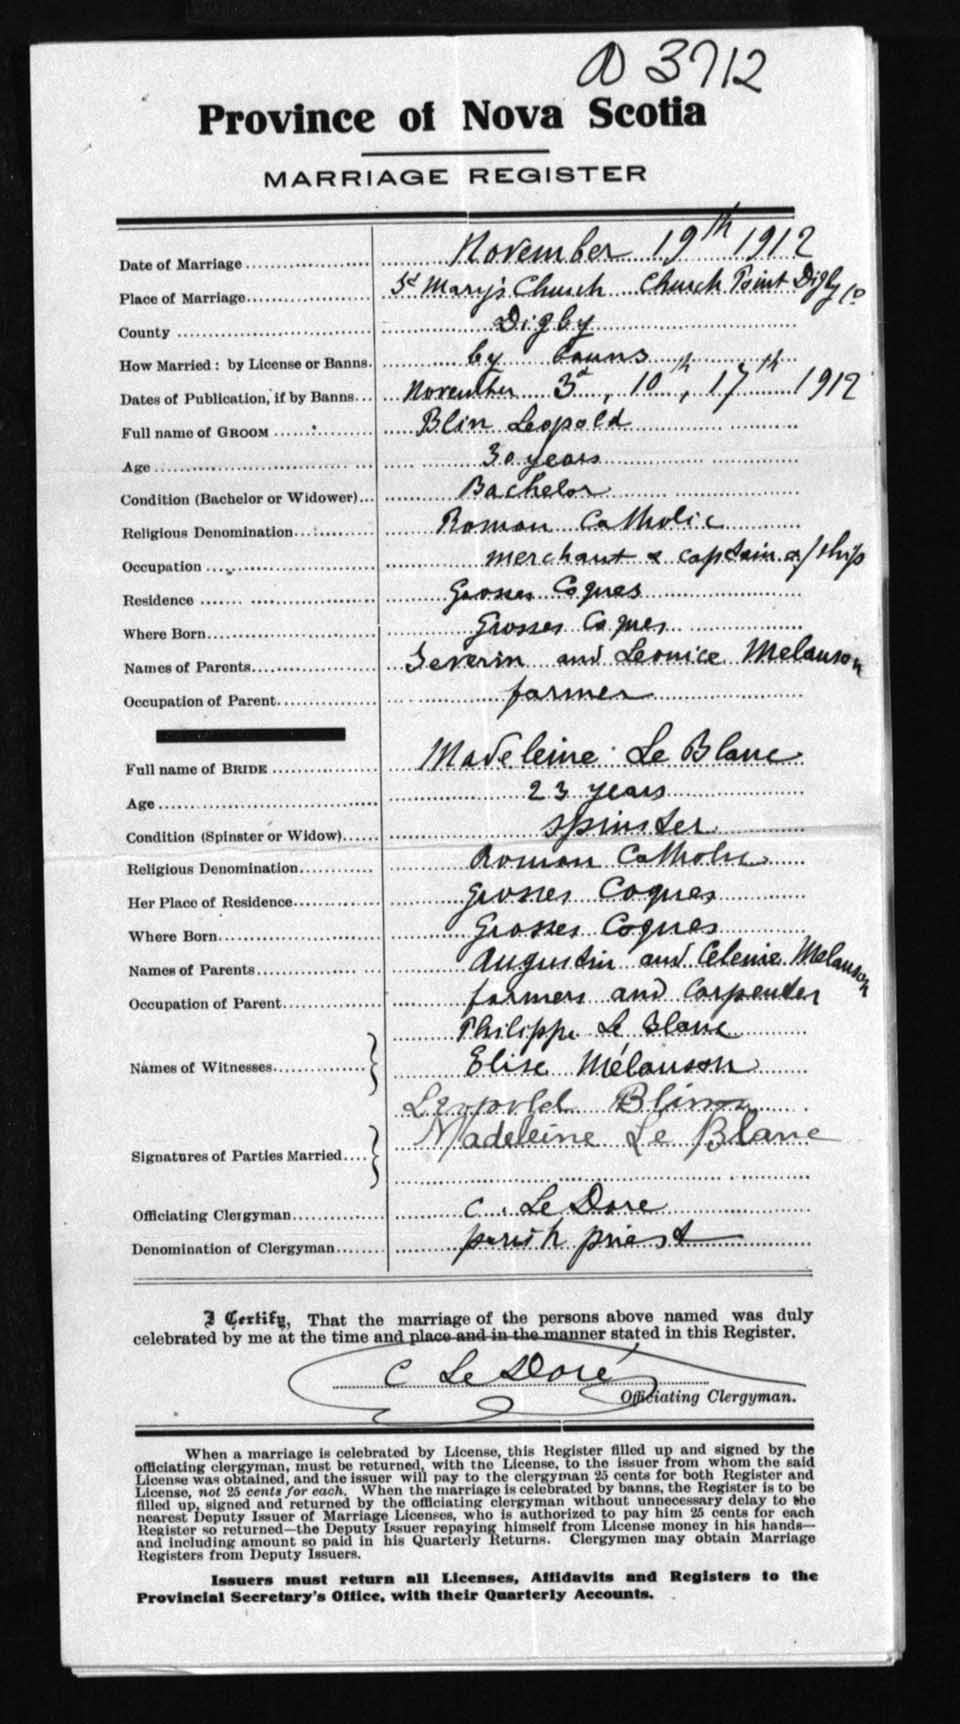 D 3712
Province of Nova Scotia
MARRIAGE REGISTER
Date of Marriage November 19th 1912
Place of Marriage St Mary's Church Church Point Digby Co
County Digby
How Married: by License or Banns. by banns
Dates of Publication, if by Banns November 3d, 10th, 17th 1912
Full name of GROOM Blin Leopold
Age 30 years
Condition (Bachelor or Widower) Bachelor
Religious Denomination Roman Catholic
Occupation merchant & captain of ship
Residence Grosses Coques
Where Born Grosses Coques
Names of Parents Severin and Leonice Melanson
Occupation of Parent farmer
Full name of BRIDE Madeleine Le Blanc
Age 23 years
Condition (Spinster or Widow) spinster
Religious Denomination Roman Catholic
Her Place of Residence Grosses Coques
Where Born Grosses Coques
Names of Parents Augustin and Celenie Melanson
Occupation of Parent farmers and Carpenter
Philippe Le Blanc
Names of Witnesses Elise Mélanson
Leopold Blinn
Madeleine Le Blanc
Signatures of Parties Married
Officiating Clergyman C. Le Dore
Denomination of Clergyman parish priest
I Certify, That the marriage of the persons above named was duly
celebrated by me at the time and place and in the manner stated in this Register.
C Le Doré
Officiating Clergyman.
When a marriage is celebrated by License, this Register filled up and signed by the
officiating clergyman, must be returned, with the License, to the issuer from whom the said
License was obtained, and the issuer will pay to the clergyman 25 cents for both Register and
License, not 25 cents for each. When the marriage is celebrated by banns, the Register is to be
filled up, signed and returned by the officiating clergyman without unnecessary delay to the
nearest Deputy Issuer of Marriage Licenses, who is authorized to pay him 25 cents for each
Register so returned—the Deputy Issuer repaying himself from License money in his hands—
and including amount so paid in his Quarterly Returns. Clergymen may obtain Marriage
Registers from Deputy Issuers.
Issuers must return all Licenses, Affidavits and Registers to the
Provincial Secretary's Office, with their Quarterly Accounts.